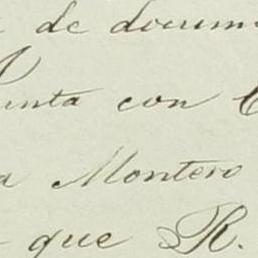 de docum
unta con
a Montero
que R.